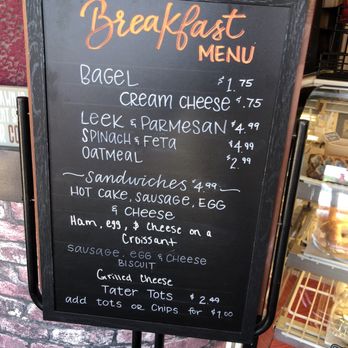 Breakfast
MENU
BAGEL $1.75
CREAM CHEESE $.75
LEEK & PARMESAN $4.99
SPINACH & FETA $4.99
OATMEAL $2.99
SANDWICHES $4.99
HOT CAKE, SAUSAGE, EGG
& CHEESE
Ham, egg, & Cheese on a
Croissant
SAUSAGE, EGG & CHEESE
BISCUIT
Grilled Cheese
TATER TOTS $2.49
add tots or Chips for $1.00